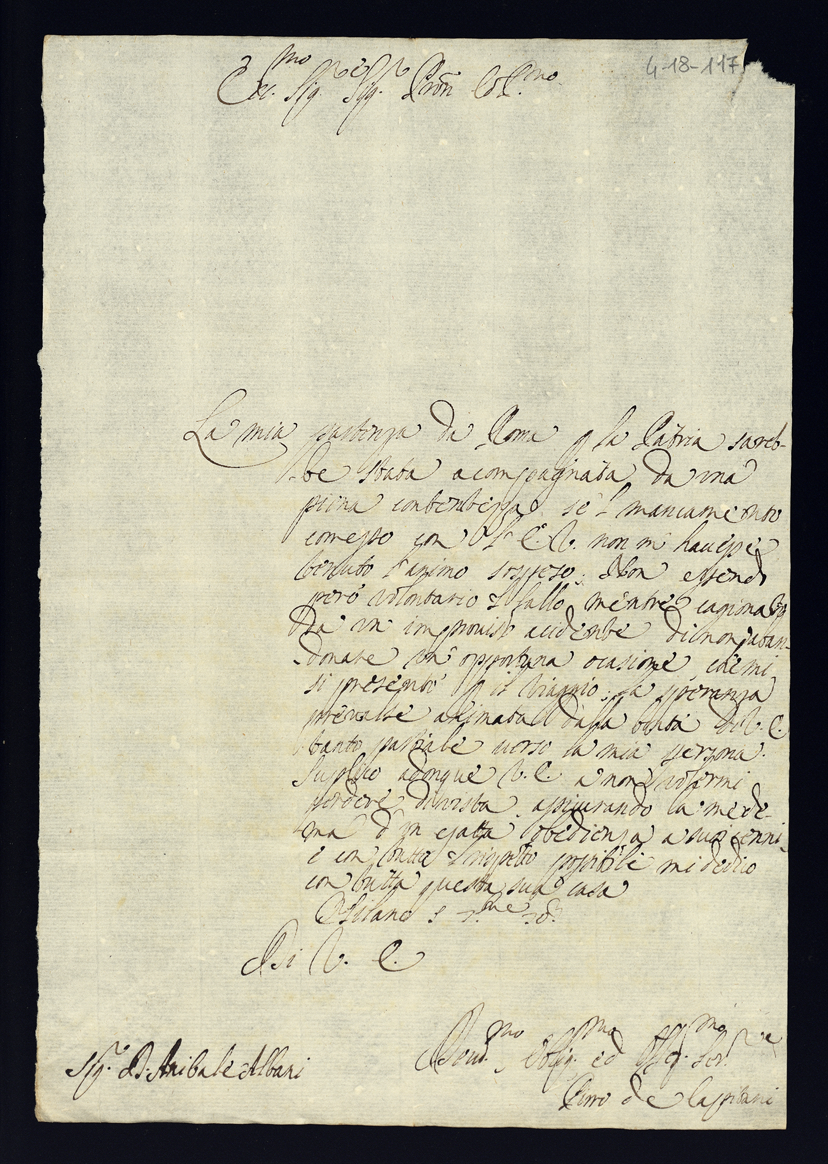 4-18-117
Ecc.mo Sig.re Sig.re Pron Col.mo
La mia partenza da Roma p la Patria sareb-
be stata acompagnata da una
piena contentezza, se'l mancamento
comesso con l' E. V. non mi havesse
tenuto l'animo sospeso; Non essendo
però volontario il fallo mentre cagionato
da un improuiso accidente di non aban-
donare un' opportuna ocasione, che mi
si presentò p il viaggio, la speranza
preualse animata dalla bontà di V. E.
tanto parziale uerso la mia persona.
Suplico adonque V. E. a non uolermi
perdere di vista, assicurando la mede-
ma d'un esatta obedienza a suoi cenni,
e con tutto il rispetto possibile mi dedico
con tutta questa sua casa
Milano
Di V. E.
Sig.r D. Anibale Albani
Deuot.mo Oblig.mo ed Osseq.mo Ser.re
Pirro de Capitani